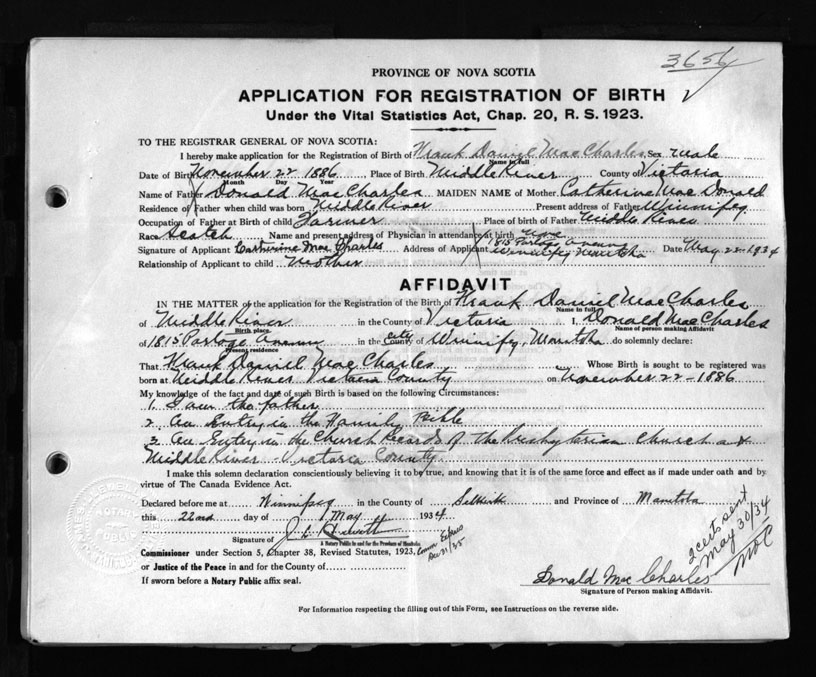 3656
PROVINCE OF NOVA SCOTIA
APPLICATION FOR REGISTRATION OF BIRTH
Under the Vital Statistics Act, Chap. 20, R. S. 1923.
TO THE REGISTRAR GENERAL OF NOVA SCOTIA:
I hereby make application for the Registration of Birth of Frank Daniel MacCharles Sex Male
Name in full
Date of Birth November 22 1886 Place of Birth Middle River County of Victoria
Month Day Year
Name of Father Donald MacCharles MAIDEN NAME of Mother Catherine MacDonald
Residence of Father when child was born Middle River Present address of Father Winnipeg
Occupation of Father at Birth of child Farmer Place of birth of Father Middle River
Race Scotch Name and present address of Physician in attendance at birth None
Signature of Applicant Catherine MacCharles Address of Applicant 1815 Portage Avenue Winnipeg Manitoba Date May 22-1934
Relationship of Applicant to child Mother
AFFIDAVIT
IN THE MATTER of the application for the Registration of the Birth of Frank Daniel MacCharles
Name in full
of Middle River in the County of Victoria I, Donald MacCharles
Birth place Name of person making Affidavit
of 1815 Portage Avenue in the County of City Winnipeg, Manitoba do solemnly declare:
Present residence
That Frank Daniel MacCharles Whose Birth is sought to be registered was
born at Middle River Victoria County on November 22-1886
My knowledge of the fact and date of such Birth is based on the following Circumstances:
1. I am the father
2. An Entry in the Family Bible
3. An Entry in the Church Records of the Presbyterian Church at
Middle River Victoria County
I make this solemn declaration conscientiously believing it to be true, and knowing that it is of the same force and effect as if made under oath and by
virtue of The Canada Evidence Act.
Declared before me at Winnipeg in the County of Selkirk and Province of Manitoba
this 22nd day of May 1934.
Signature of
A Notary Public in and for the Province of Manitoba
Commissioner under Section 5, Chapter 38, Revised Statutes, 1923. Comm Expires Dec 31/35
or Justice of the Peace in and for the County of
If sworn before a Notary Public affix seal.
2 certs sent
May 30/34
Donald MacCharles
Signature of Person making Affidavit.
For Information respecting the filling out of this Form, see Instructions on the reverse side.